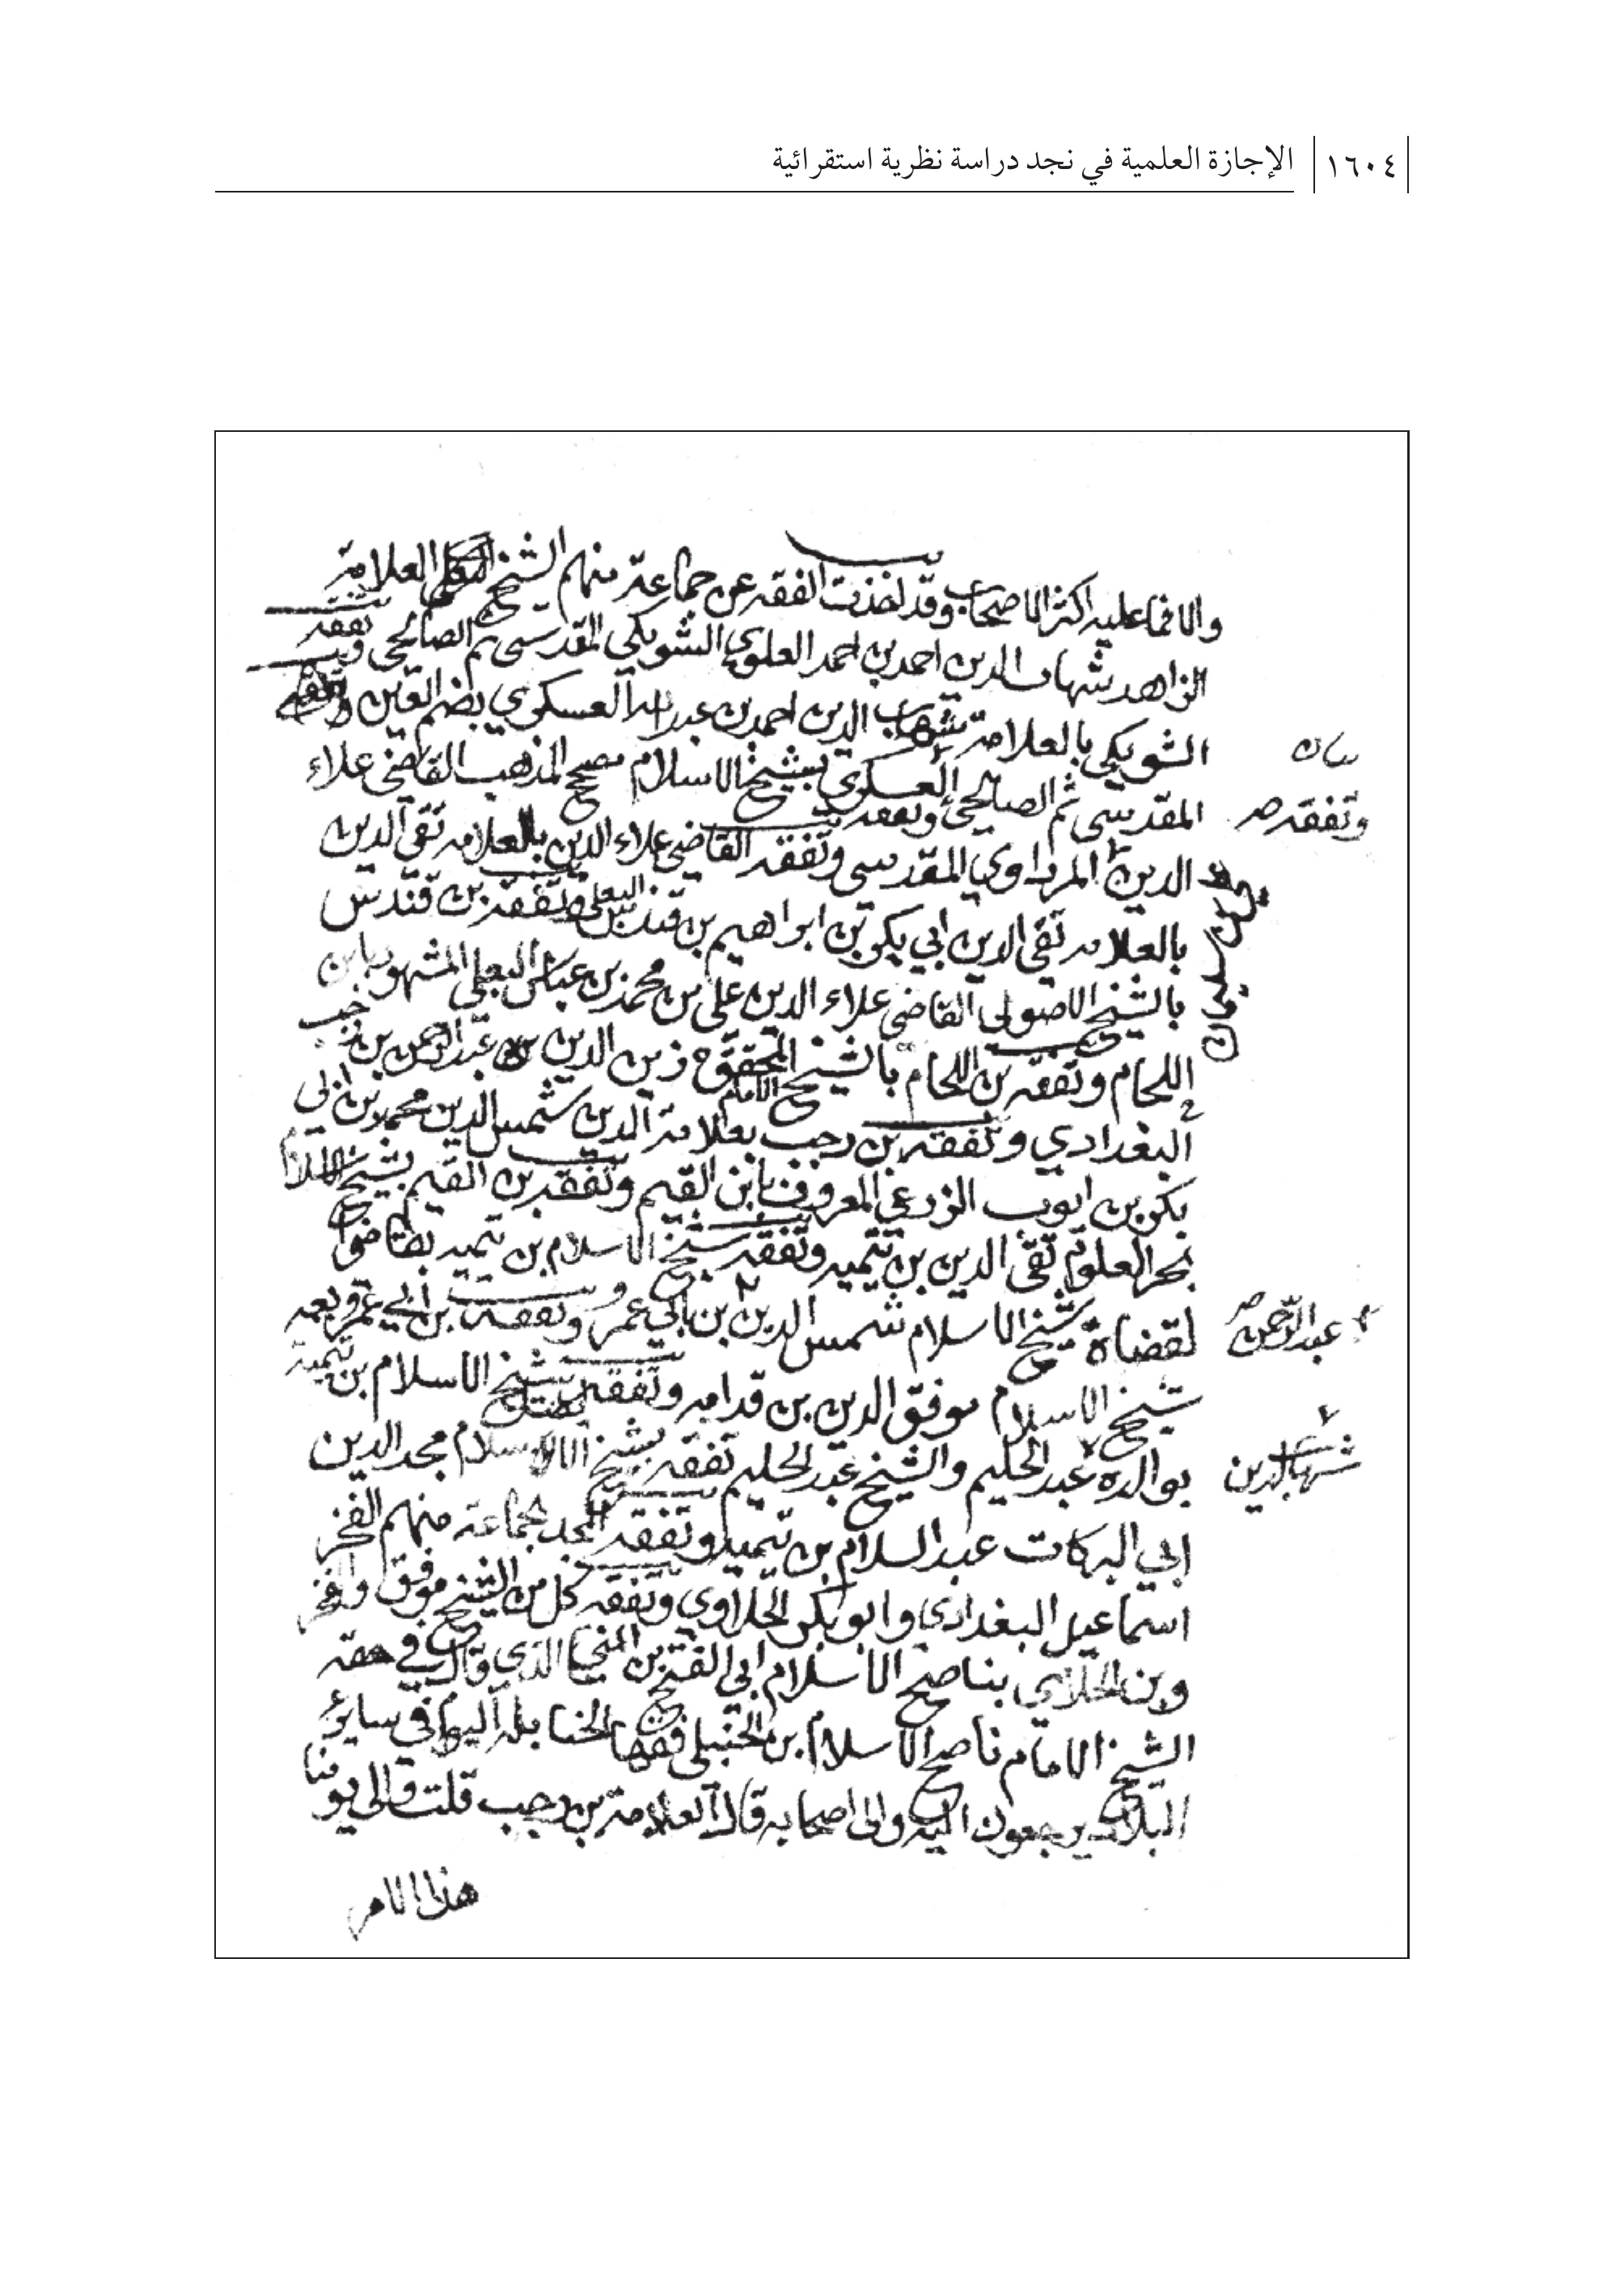 ١٦٠٤ الإجازة العلمية في نجد دراسة نظرية استقرائية
والافما عليه اكثر الاصحاب وقد اخذت الفقه عن جماعة منهم الشيخ العلامة
الزاهد شهاب الدين احمد بن احمد العلوي الشويكي المقدسي ثم الصالحي وتفقه
الشويكي بالعلامة شهاب الدين احمد بن عبد الله العسكري بضم العين
المقدسي ثم الصالحي وتفقه العسكري بشيخ الاسلام مصحح المذهب القاضي علاء
وتفقه صح
الدين المرداوي المقدسي وتفقه القاضي علاء الدين بالعلامه تقي الدين
بالعلامه تقي الدين ابي بكر بن ابراهيم بن قندس البعلي وتفقه بن قندس
بالشيخ الاصولي القاضي علاء الدين علي بن محمد بن عباس البعلي المشهور بابن
اللحام وتفقه بن اللحام بالشيخ المحقق زين الدين عبد الرحمن بن رجب
البغدادي وتفقه بن رجب بعلامة الدين شمس الدين محمد بن ابي
الامام
بكر بن ايوب الزرعي المعروف بابن القيم وتفقه بن القيم بشيخ الاسلام
بحر العلوم تقي الدين بن تيميه وتفقه شيخ الاسلام بن تيميه بقاضي
لقضاة شيخ الاسلام شمس الدين بن ابي عمر وتفقه بن ابي عمر بعمه
عبد الرحمن صح
شيخ الاسلام موفق الدين بن قدامه وتفقه شيخ الاسلام بن تيمية
بوالده عبد الحليم والشيخ عبد الحليم تفقه بشيخ الاسلام مجد الدين
شهاب الدين
ابي البركات عبد السلام بن تيميه وتفقه المجد بجماعة منهم الفخر
اسماعيل البغدادي وابو بكر الحلاوي وتفقه كل من الشيخ موفق والفخر
وبن الحلاوي بناصح الاسلام ابي الفتح بن المني الذي قال في حقه
الشيخ الامام ناصح الاسلام بن الحنبلي فقهاء الحنابله اليوم في سائر
البلاد يرجعون اليه والى اصحابه قال العلامة بن رجب قلت والى يومنا
هذا الامر